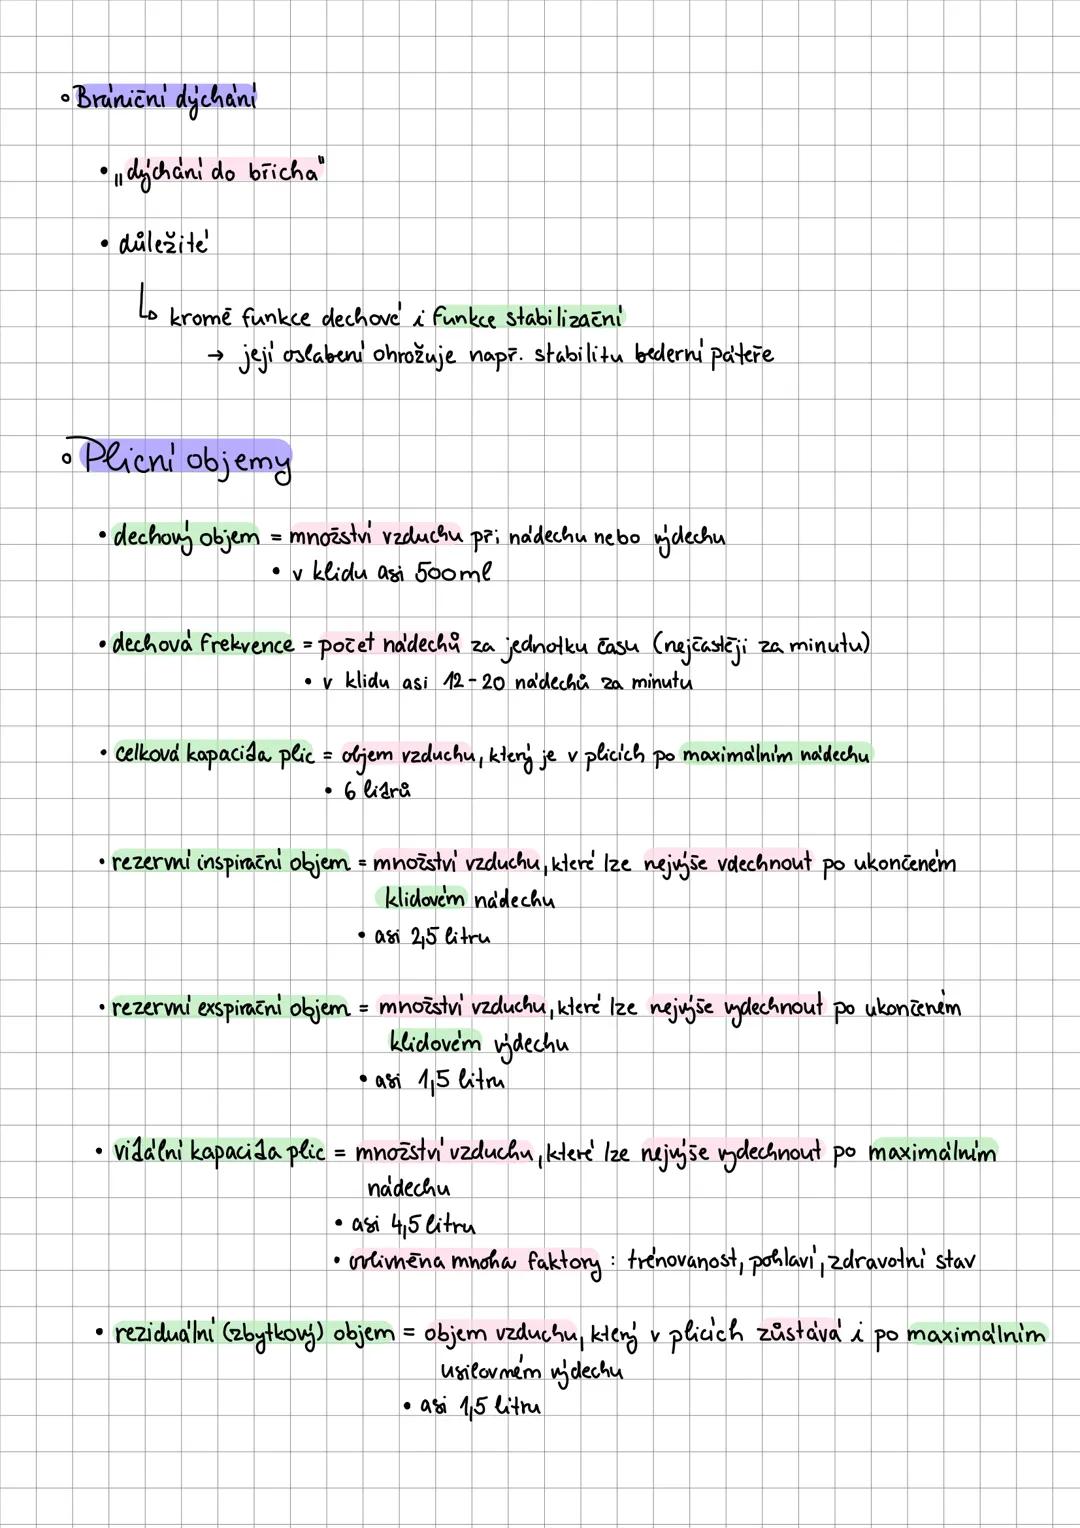 Brániční dýchání
• „dýchání do břicha"
• důležité
↳ kromě funkce dechové i funkce stabilizační
→ její oslabení ohrožuje např. stabilitu bederní páteře
Plicní objemy
• dechový objem = množství vzduchu při nádechu nebo výdechu
• v klidu asi 500ml
• dechová frekvence = počet nádechů za jednotku času (nejčastěji za minutu)
• v klidu asi 12-20 nádechů za minutu
• celková kapacita plic = objem vzduchu, který je v plicích po maximálním nádechu
• 6 litrů
• rezervní inspirační objem = množství vzduchu, které lze nejvýše vdechnout po ukončeném
klidovém nádechu
• asi 2,5 litru
• rezervní exspirační objem = množství vzduchu, které lze nejvýše vydechnout po ukončeném
klidovém výdechu
• asi 1,5 litru
• vitální kapacita plic = množství vzduchu, které lze nejvýše vydechnout po maximálním
nádechu
• asi 4,5 litru
• ovlivněna mnoha faktory : trénovanost, pohlaví, zdravotní stav
• reziduální (zbytkový) objem = objem vzduchu, který v plicích zůstává i po maximálním
usilovném výdechu
• asi 1,5 litru